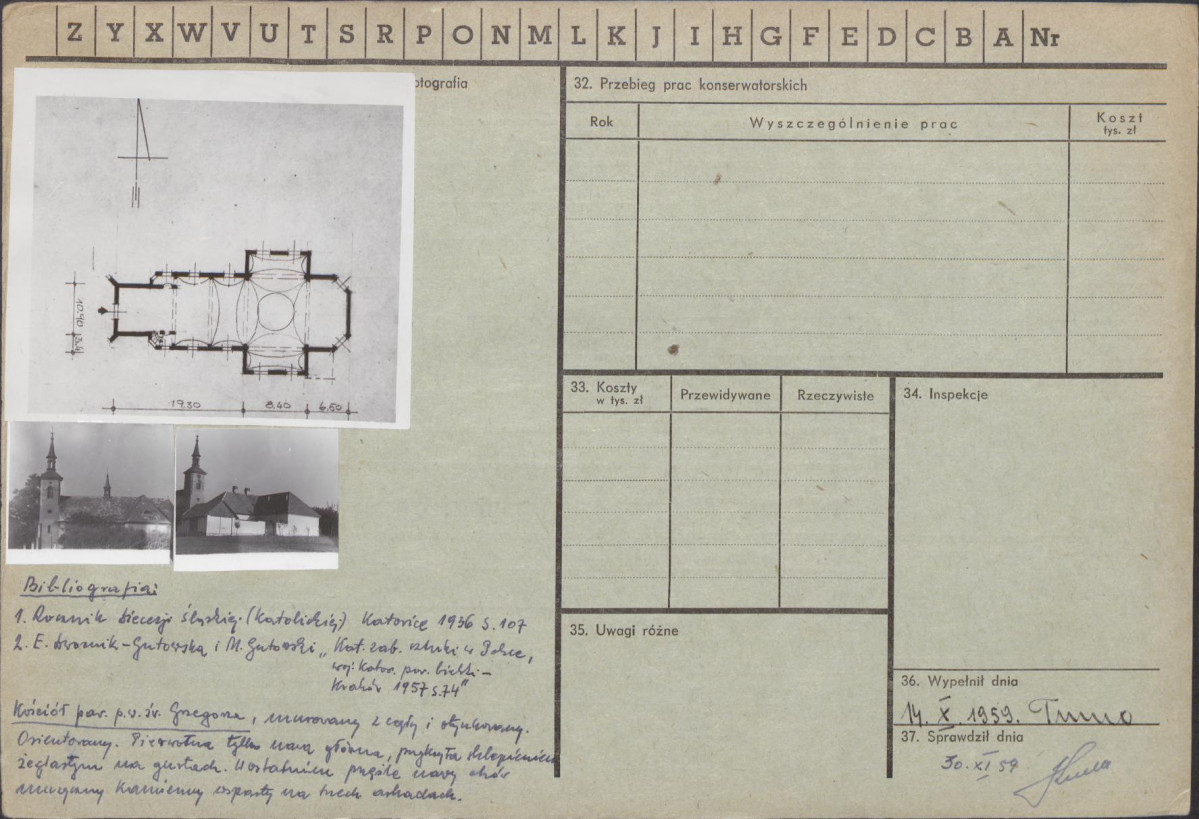 Z Y X W V U T S R P O N M L K J I H G F E D C B A Nr
otografia
10.40
19.30 8.40 6.50
Bibliografia:
1. Rocznik Diecezji Śląskiej (Katolickiej) Katowice 1936 s. 107
2. E. Dwornik-Gutowska i M. Gutowski „Kat. zab. sztuki w Polsce,
woj. Katow. pow. bielski –
Kraków 1957 s. 74"
Kościół par. p.w. św. Grzegorza, murowany z cegły i otynkowany.
Orientowany. Pierwotna tylko nawa główna, przykryta sklepieniem
żeglastym na gurtach. W ostatnim przęśle nawy chór
muzyczny kamienny wsparty na trzech arkadach.
32. Przebieg prac konserwatorskich
Rok Wyszczególnienie prac Koszt
tys. zł
33. Koszty
w tys. zł
Przewidywane Rzeczywiste
34. Inspekcje
35. Uwagi różne
36. Wypełnił dnia
14. X. 1959.
37. Sprawdził dnia
30. XI 59